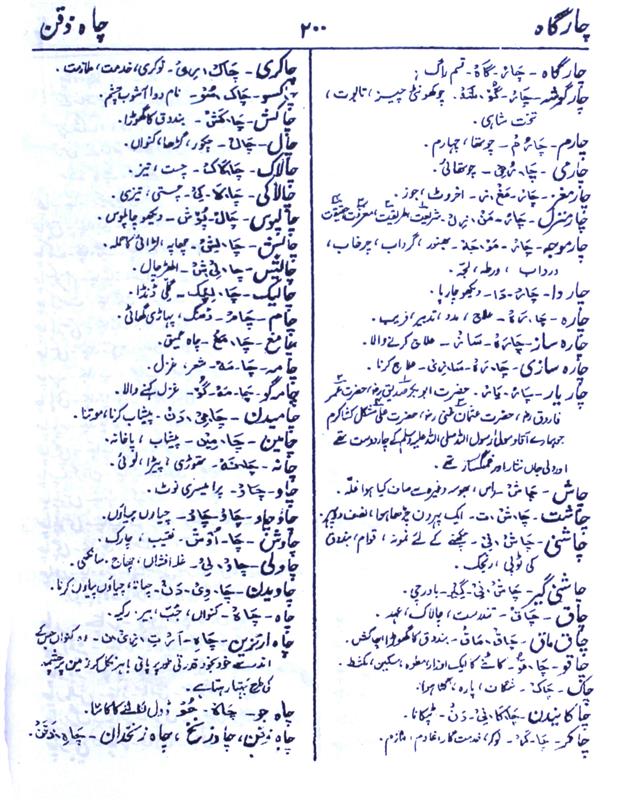 چارگاہ ۲۰۰ چاہ ذقن
چارگاہ - چَارْ گَاہْ - قسم راگ ؛
چارگوشہ - چَارْ - گَوْ - شَہْ - چوکھونٹی چیز ، تابوت ،
تخت شاہی ۔
چارم - چَا رُمْ - چوتھا ، چہارم ۔
چارمی - چَا رُمِیْ - چوتھائی ۔
چارمغز - چَارْ - مَغْ - زْ - اخروٹ ، جوز ۔
چارمنزل - چَارْ - مَنْ - زِلْ - شریعت ، طریقت ، معرفت ، حقیقت
چارموجہ - چَارْ - مَوْ - جَہْ - بھنور ، گرداب ، چرخاب ،
درداب ، ورطہ ، لجّہ ۔
چاروا - چَارْ - وَا - دیکھو چارپا ۔
چارہ - چَا - رَہْ - علاج ، مدد ، تدبیر ، فریب ۔
چارہ ساز - چَا رَہْ - سَازْ - علاج کرنے والا ۔
چارہ سازی - چَا رَہْ - سَا زِیْ - علاج کرنا ۔
چاریار - چَارْ - یَارْ - حضرت ابوبکر صدیق رضؓ ، حضرت عمر
فاروق رضؓ ، حضرت عثمان غنی رضؓ ، حضرت علی مشکل کشا کرم
جو ہمارے آقا و مولیٰ رسول اللہ صلی اللہ علیہ وسلم کے چار دوست تھے
اور دلی جاں نثار اور غمگسار تھے ۔
چاش - چَاشْ - راس ، بھوسہ وغیرہ سے صاف کیا ہوا غلّہ ۔
چاشت - چَا شْ تْ - ایک پہر دن چڑھا ہوا ، نصف دوپہر ۔
چاشنی - چَاشْ - نِیْ - چکھنے کے لئے نمونہ ، قوام ، بندوق
کی ٹوپی ، رنجک ۔
چاشنی گیر - چَاشْ - نِیْ - گِیْرْ - باورچی ۔
چاق - چَاقْ - تندرست ، چالاک ، عمدہ ۔
چاق ماق - چَاقْ - مَاقْ - بندوق کا گھوڑا ، چکش ۔
چاقو - چَا - قُوْ - کاٹنے کا ایک اوزار معلومہ ، سکین ،
چاک - چَاکْ - شگاف ، پارہ ، پھٹا ہوا ۔
چاکانیدن - چَا کَا - نِیْ - دَنْ - ٹپکانا ۔
چاکر - چَا - کَرْ - نوکر ، خدمت گار ، خادم ، ملازم ۔
چاکری - چَاکْ - رِیْ - نوکری ، خدمت ، ملازمت ۔
چاکسو - چَاکْ - سُوْ - نام دوا آشوب چشم ۔
چاکش - چَا - کَشْ - بندوق کا گھوڑا ۔
چال - چَالْ - چکور ، گڑھا ، کنواں ۔
چالاک - چَا لَاکْ - چست ، تیز ۔
چالاکی - چَا - لَا - کِیْ - چستی ، تیزی ۔
چالپوس - چَالْ - پُوْسْ - دیکھو چاپلوس ۔
چالش - چَا - لِشْ - چھاپہ ، لڑائی کا حملہ ۔
چالیش - چَا - لِیْ شْ - الھڑ چال ۔
چالیک - چَا - لِیْکْ - گلی ڈنڈا ۔
چام - چَامْ - ڈھنگ ، پہاڑی گھاٹی ۔
چامغ - چَا - مِغْ - چاہ عمیق ۔
چامہ - چَا - مَہْ - شعر ، غزل ۔
چامہ گو - چَا - مَہْ - گَوْ - غزل کہنے والا ۔
چامیدن - چَا - مِیْ - دَنْ - پیشاب کرنا ، موتنا ۔
چامین - چَا - مِیْن - پیشاب ، پاخانہ ۔
چانہ - چَا - نَہْ - ٹھوڑی ، پیڑا ، لوئی ۔
چاو - چَاوْ - پرامیسری نوٹ ۔
چاوچاو - چَاوْ چَاوْ - چیاؤں بیاؤں ۔
چاوش - چَا - وُشْ - نقیب ، چارک ۔
چاولی - چَاوْ - لِیْ - غلہ افشاں ، چھاج ،
چاویدن - چَا - وِیْ - دَنْ - چباتا ، چیاؤں پیاؤں کرنا ۔
چاہ - چَاہْ - کنواں ، جُبّ ، بیر ، رکیہ ۔
چاہ ارتزین - چَاہِ - وہ کنواں جس کے
اندر سے خود بخود قدرتی طور پر پانی باہر نکل کر زمین پر چشمہ
کی طرح بہتا رہتا ہے ۔
چاہ جو - چَاہْ - جُوْ - ڈول نکالنے کا کانٹا ۔
چاہ ذقن ، چاہ زنخ ، چاہ زنخدان - چَاہِ - ذَقَنْ ۔